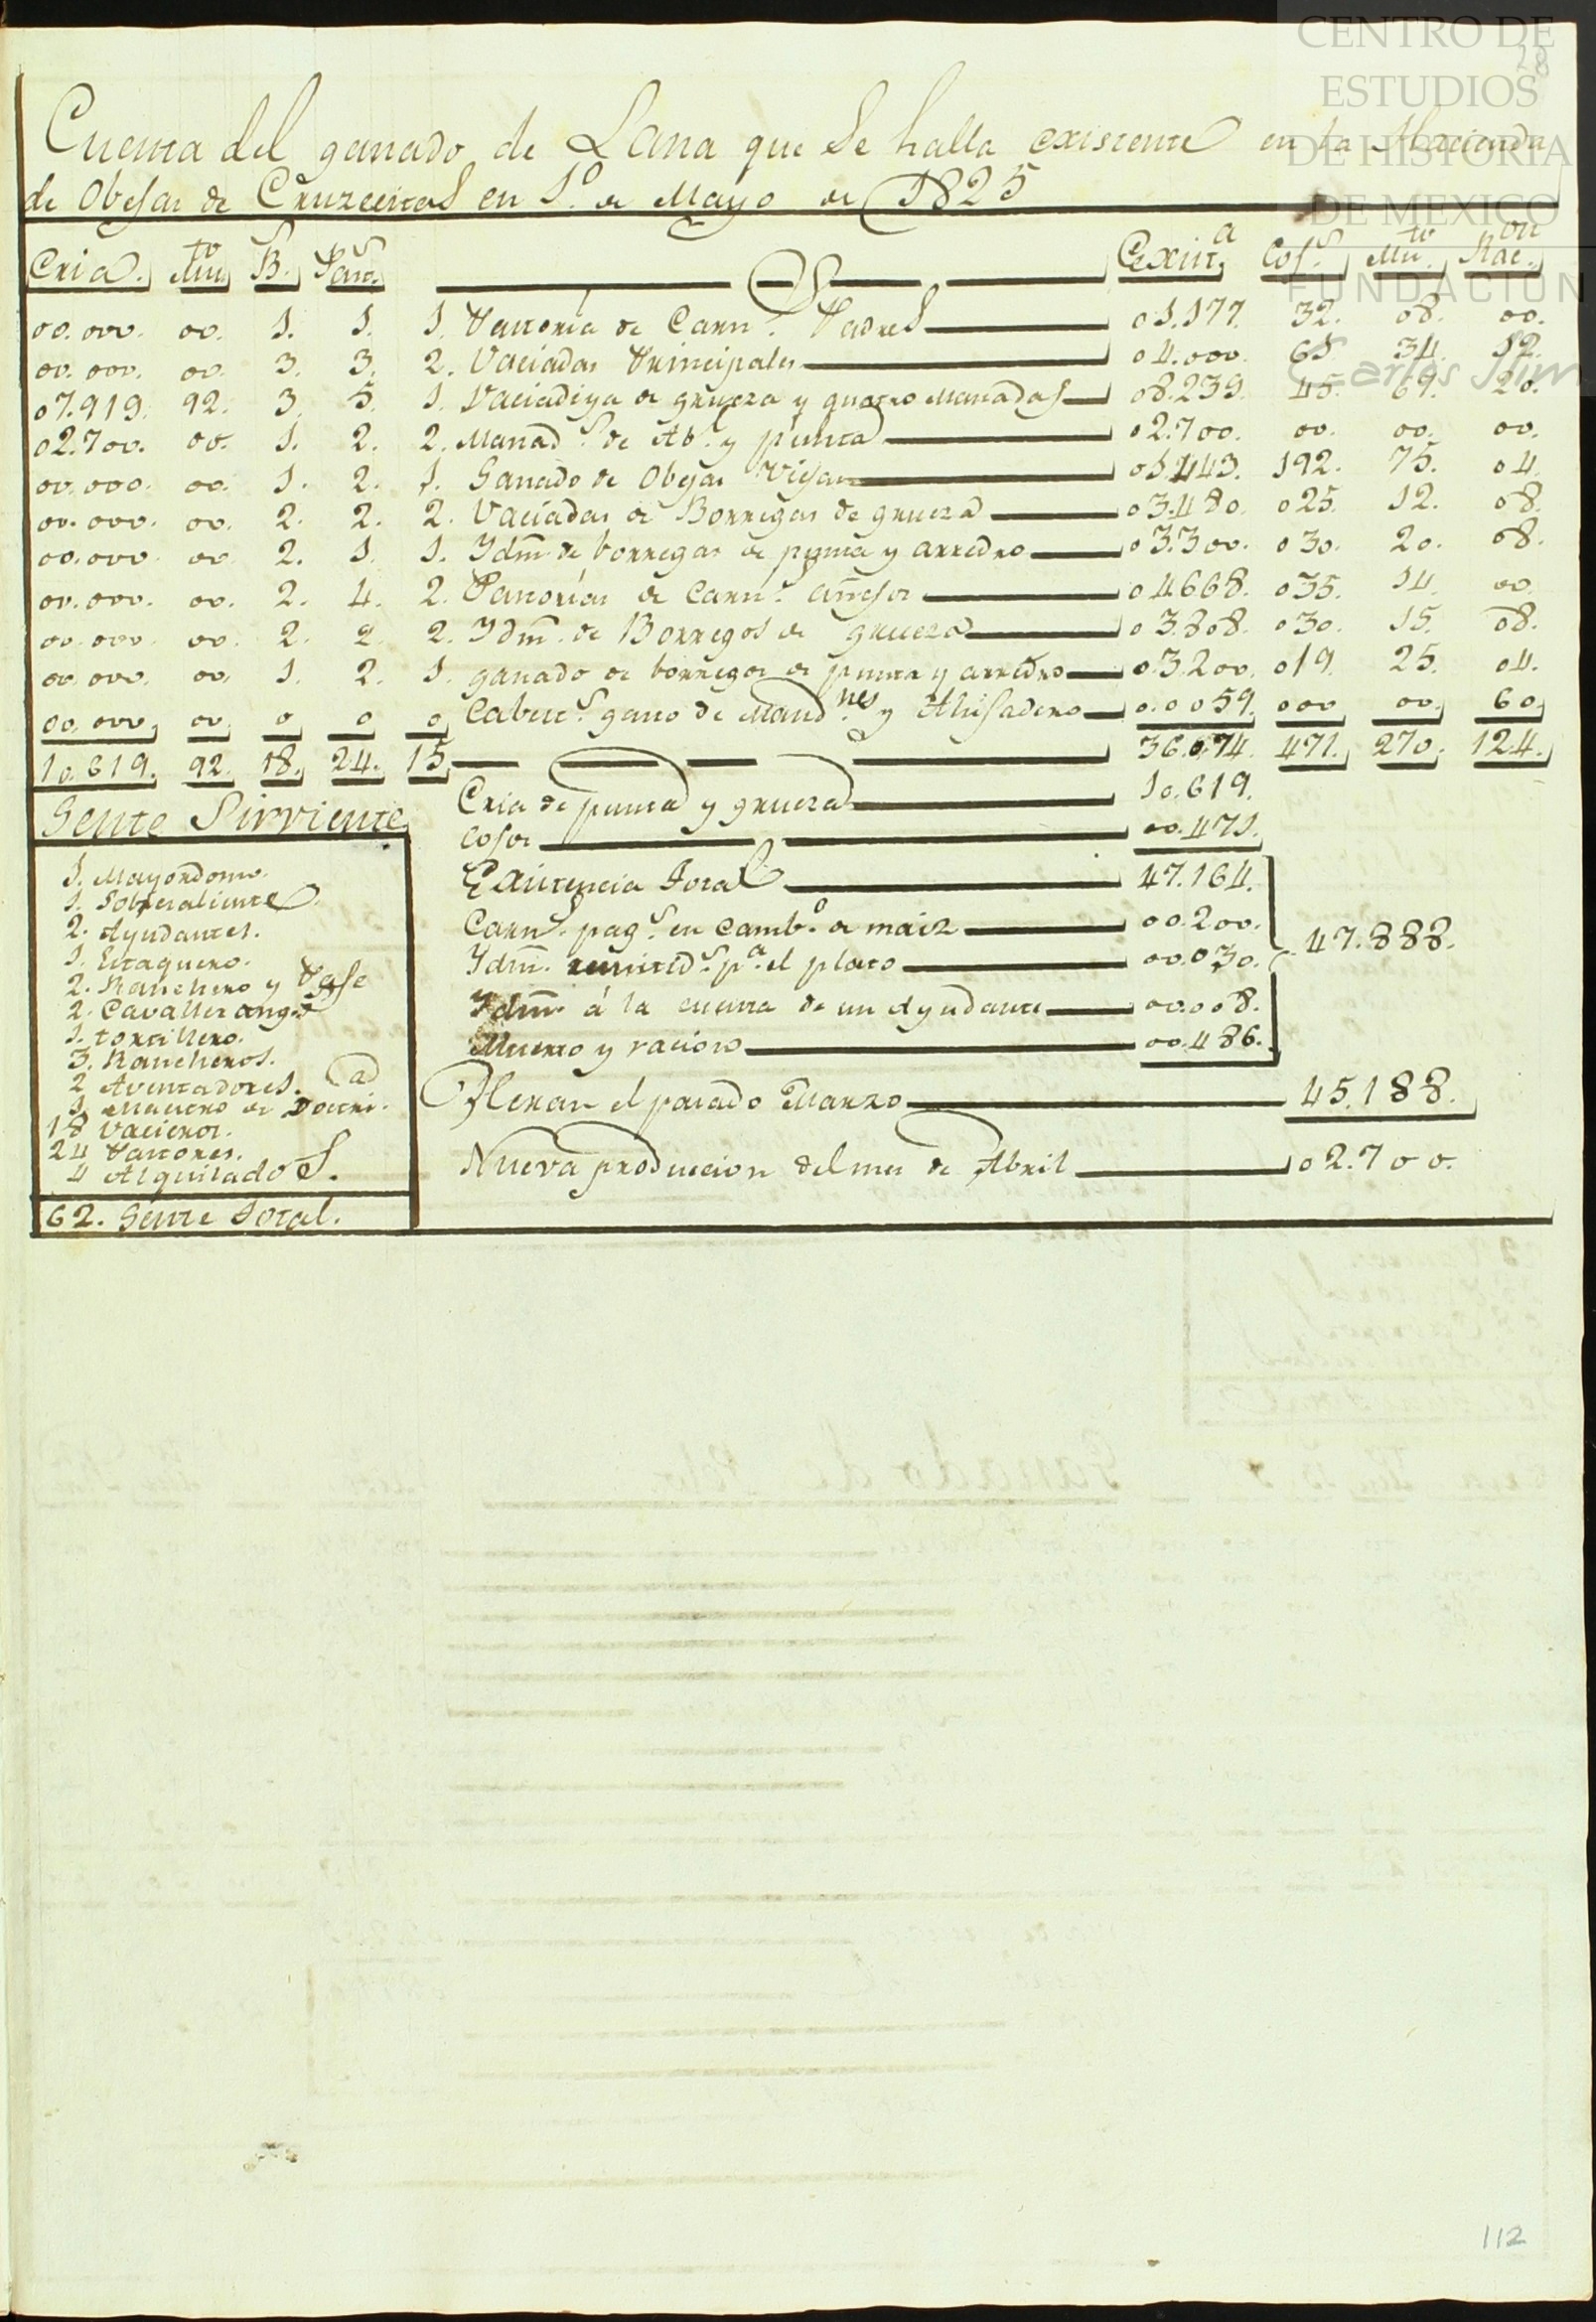 CENTRO DE
ESTUDIOS
DE HISTORIA
DE MEXICO
FUNDACION
Carlos Slim
28
Cuenta del ganado de Lana que Se halla existente en la Hacienda
de Obejas de Cruzecitas en 1.º de Mayo de 1825
Cria. Mu.to B.s Pas.s Exist.a Cos.s Mu.to Rac.on
00.000. 00. 1. 1. 1. Pastoria de Carn.s Padres 01.177. 32. 08. 00.
00.000. 00. 3. 3. 2. Vaciadas Principales 04.000. 65. 34. 12.
07.919. 92. 3. 5. 1. Vaciadiya de grueza y quatro Manadas 08.239. 45. 69. 20.
02.700. 00. 1. 2. 2. Manad.s de Ab.l y punta 02.700. 00. 00. 00.
00.000. 00. 1. 2. 1. Ganado de Obejas Viejas 01.443. 192. 75. 04.
00.000. 00. 2. 2. 2. Vaciadas de Borregas de grueza 03.480. 025. 12. 08.
00.000. 00. 2. 1. 1. Idm. de borregas de punta y arredro 03.300. 030. 20. 08.
00.000. 00. 2. 4. 2. Pastorías de Carn.s añejos 04668. 035. 14. 00.
00.000. 00. 2. 2. 2. Idm. de Borregos de grueza 03.808. 030. 15. 08.
00.000. 00. 1. 2. 1. ganado de borregos de punta y arredro 03.200. 019. 25. 04.
00.000. 00. 0 0 0 Cabest.s gano de Mand.nes y Ahijadero 0.0059. 000 00. 60.
10.619. 92. 18. 24. 15. 36.074. 471. 270. 124.
Gente Sirviente
Cria de punta y grueza 10.619.
Cosos 00.471.
1. Mayordomo.
1. Sobresaliente.
2. Ayudantes.
1. Estaquero.
2. Ranchero y Paje
2. Cavallerango
1. tortillero.
3. Rancheros.
2 Aventadores.
1. Maestro de Doctri.ad
18 Vacieros.
24 Pastores.
4 Alquilados.
62. Gente Total.
Existencia Total 47.164.
Carn.s pag.s en Camb.o de maiz 00.200.
Idm. remitid.s p.a el plato 00.030.
47.888.
Idm. á la cuenta de un Ayudante 00.008.
Muerto y racion 00.486.
Heran el pasado Marzo 45.188.
Nueva produccion del mes de Abril 02.700.
112